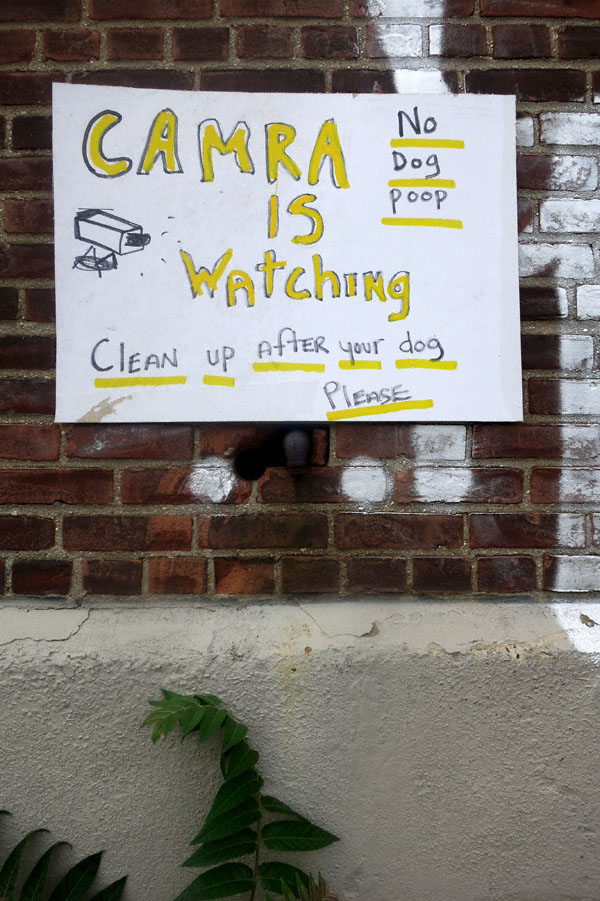 CAMRA
IS
WAtchING
No
Dog
poop
CLEAN up AftER your dog
PLEASE